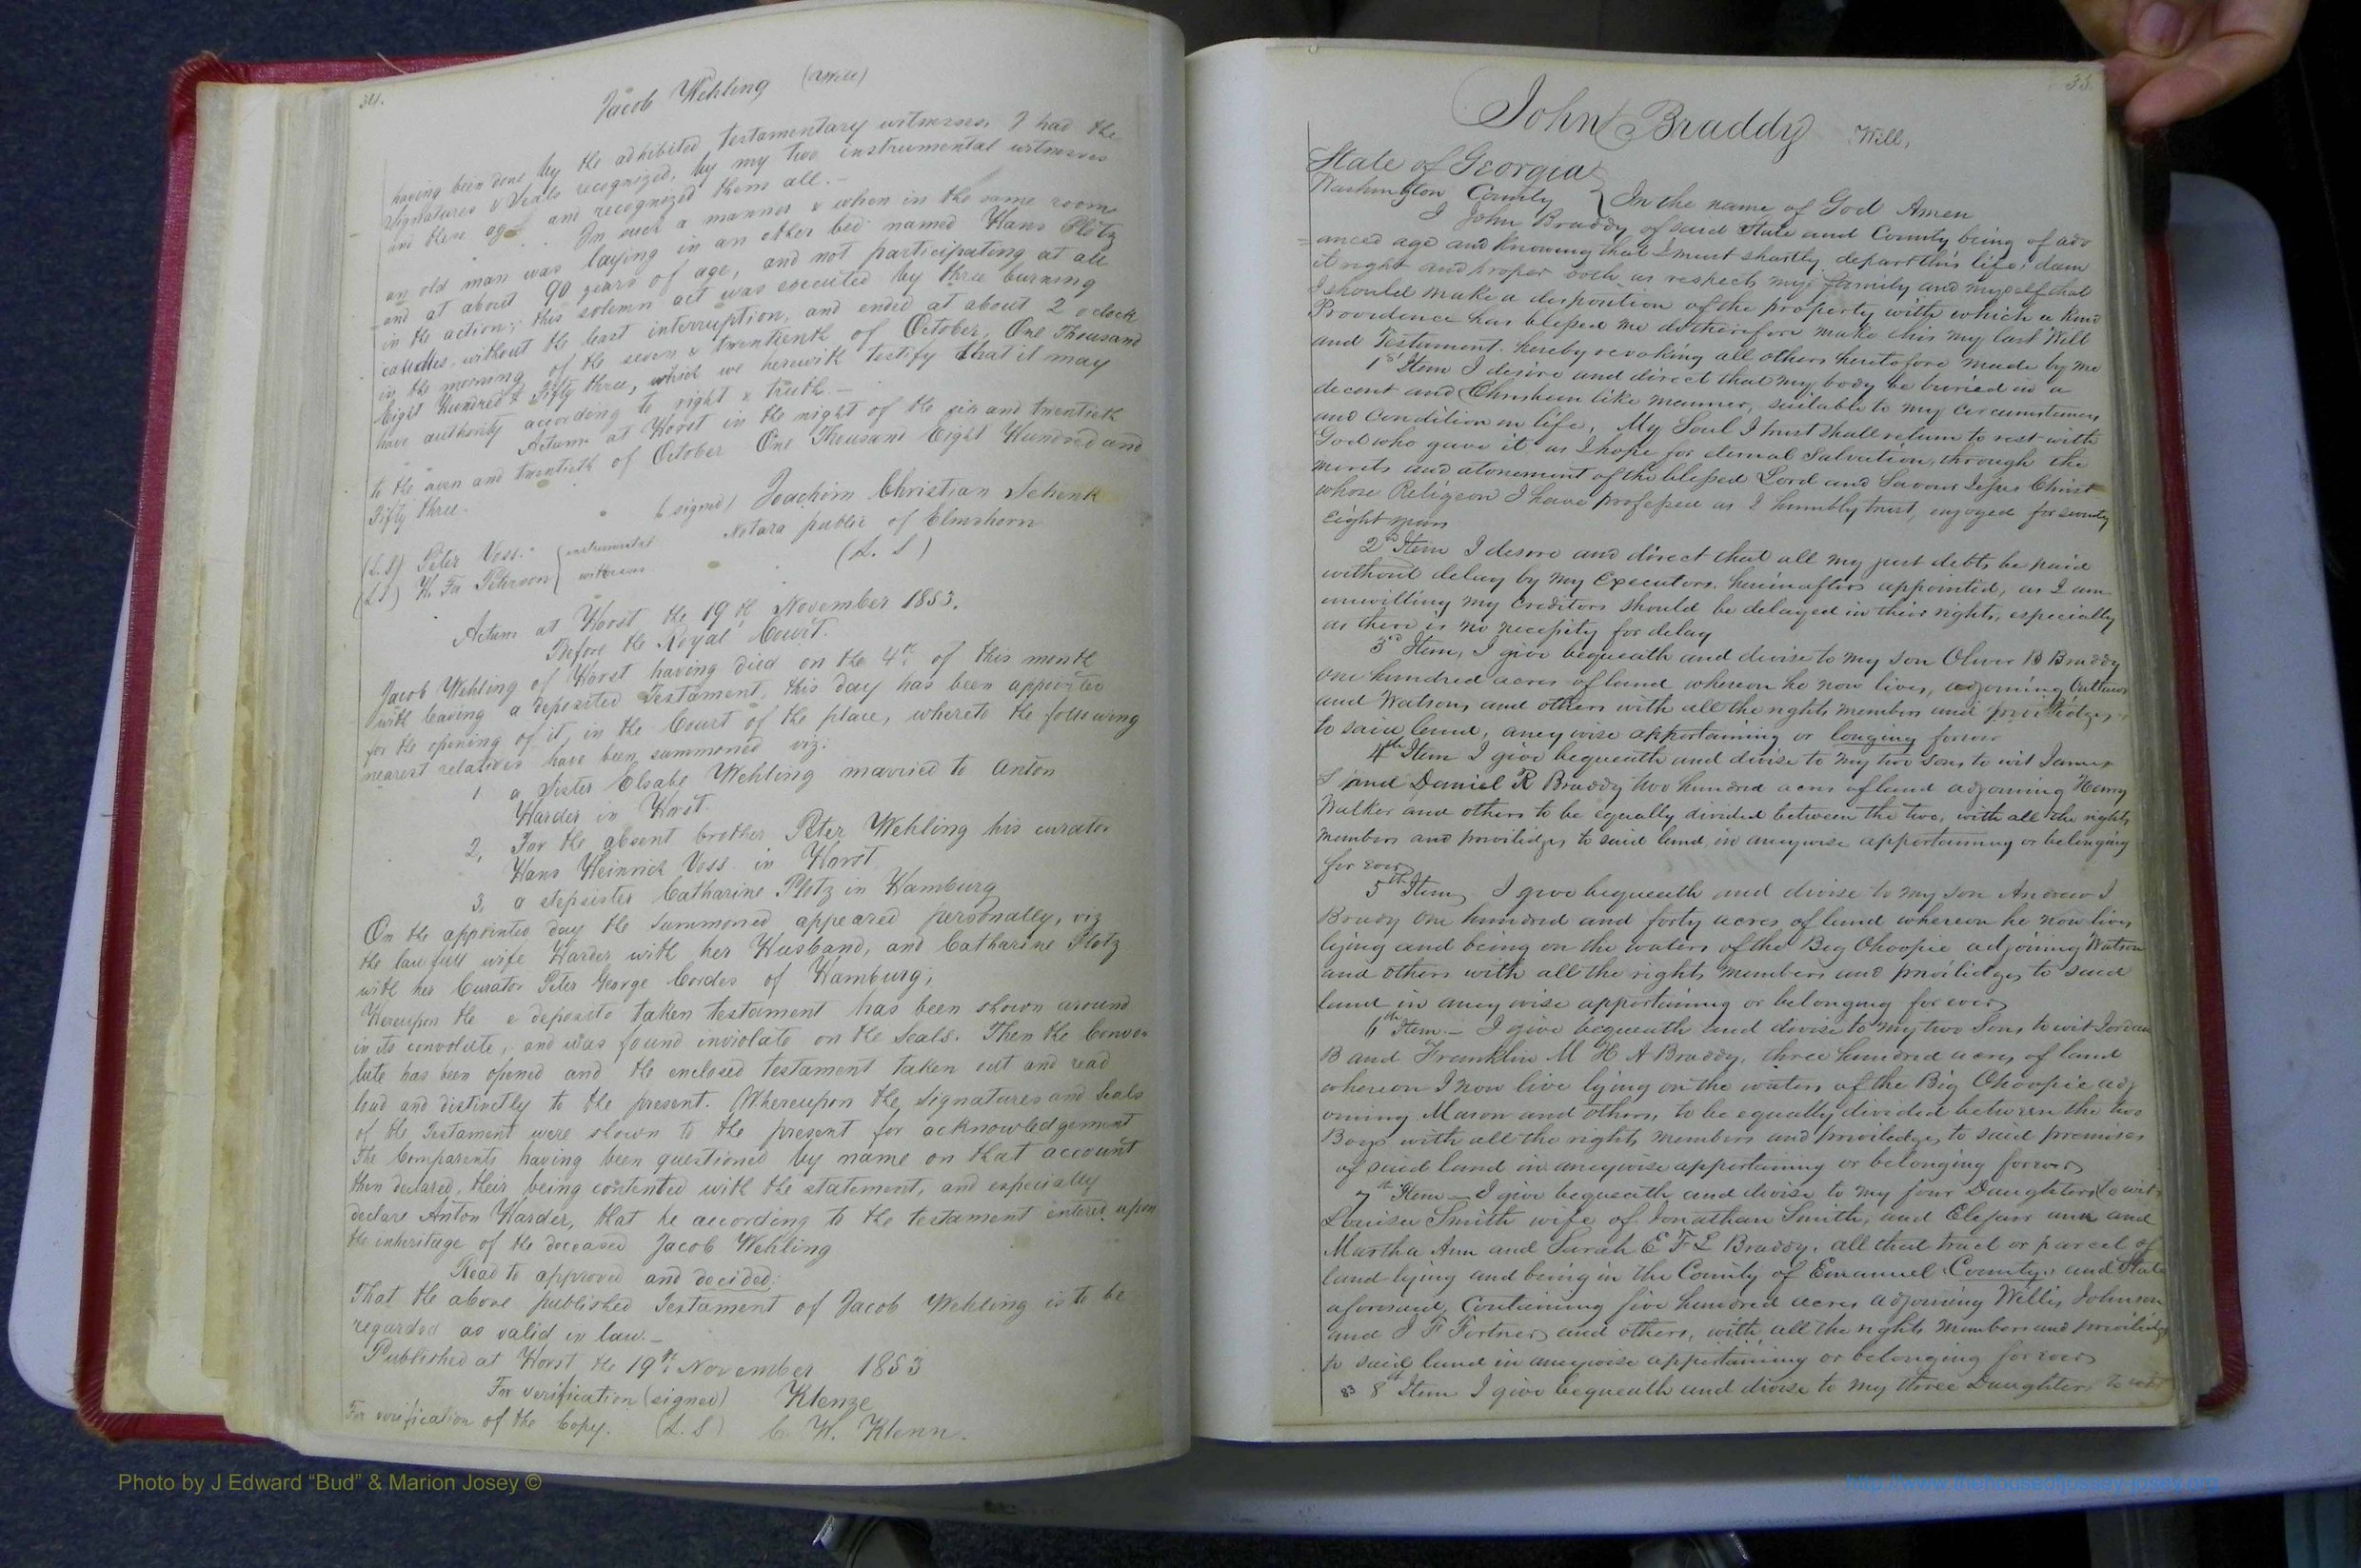 34.
Jacob Wehling (Will)
having been done by the adhibited testamentary witnesses, I had the
signatures & Seals recognized, by my two instrumental witnesses
and these and recognized them all. —
In such a manner & when in the same room
an old man was laying in an other bed named Hans Plötz
and at about 90 years of age, and not participating at all
in the action; this solemn act was executed by three burning
candles, without the least interruption, and ended at about 2 oclock
in the morning of the seven & twentieth of October, One Thousand
Eight Hundred & Fifty three, which we herewith testify that it may
have authority according to right & truth. —
Actum at Horst in the night of the six and twentieth
to the seven and twentieth of October One Thousand Eight Hundred and
Fifty three.
(signed) Joachim Christian Schenk
Notara public of Elmshorn
(L.S) Peter Voss. instrumental (L. S)
(L.S) H. Fa Peterson witnesses
Actum at Horst the 19th November 1853.
Before the Royal Court.
Jacob Wehling of Horst having died on the 4th of this month
with leaving a deposited Testament, this day has been appointed
for the opening of it, in the Court of the place, whereto the following
nearest relatives have been summoned viz:
1. a Sister Elsabe Wehling married to Anton
Harder in Horst.
2, For the absent brother Peter Wehling his curator
Hans Heinrich Voss in Horst
3, a stepsister Catharine Plötz in Hamburg
On the appointed day the summoned appeared personally, viz
the lawfull wife Harder with her Husband, and Catharine Plötz
with her Curator Peter George Cordes of Hamburg;
Hereupon the e deposito taken testament has been shown around
in its convolute, and was found inviolate on the Seals. Then the Convo-
lute has been opened and the enclosed testament taken out and read
loud and distinctly to the present. Whereupon the signatures and Seals
of the Testament were shown to the present for acknowledgement
The Comparents having been questioned by name on that account
then declared, their being contented with the statement, and especially
declare Anton Harder, that he according to the testament enteres upon
the inheritage of the deceased Jacob Wehling
Read to approved and decided:
That the above published Testament of Jacob Wehling is to be
regarded as valid in law. —
Published at Horst the 19th November 1853
For verification (signed) Klenze
For verification of the Copy. (L. S) C. W. Klenn.
35
John Braddy Will,
State of Georgia
Washington County In the name of God Amen
I John Braddy of said State and County being of adv
anced age and knowing that I must shortly depart this life, dam
it right and proper both as respects my family and myself that
I should make a desposition of the property with which a kind
Providence has blessed me do therefore make this my last Will
and Testament. hereby revoking all others heretofore made by me
1st Item I desire and direct that my body be buried in a
decent and Christian like manner, suitable to my circumstances
and condition in life, My Soul I trust shall return to rest with
God who gave it as I hope for eternal Salvation, through the
merits and atonement of the blessed Lord and Savour Jesus Christ
whose Religion I have professed as I humbly trust, enjoyed for seventy
Eight years
2nd Item I desire and direct that all my just debts be paid
without delay by my Executors hereinafters appointed, as I am
unwilling my creditors should be delayed in their rights, especially
as there is no necessity for delay
3rd Item, I give bequeath and devise to my son Oliver B Braddy
one hundred acres of land whereon he now lives, adjoining
and Watson, and others with all the rights members and priviledges
to said land, aney wise appertaining or longing forever
4th Item I give bequeath and devise to my two sons to wit James
S and Daniel R Braddy two hundred acres of land adjoining Henry
Walker and others to be equally divided between the two, with all the rights
members and priviledges to said land in aneywise appertaining or belonging
for ever
5th Item I give bequeath and divise to my son Andrew J
Brady One hundred and forty acres of land whereon he now lives
lying and being on the waters of the Big Ohoopie adjoining Watson
and others with all the rights members and priviledges to said
land in aney wise appertaining or belonging for ever
6th Item — I give bequeath and divise to my two Sons to wit Jordan
B and Franklin M H A Braddy, three hundred acres of land
whereon I now live lying on the waters of the Big Ohoopie adj
oining Mason and others, to be equally divided between the two
Boys with all the rights members and priviledges to said premises
of said land in aneywise appertaining or belonging forever
7th Item — I give bequeath and devise to my four Daughters to wit
Louisa Smith wife of Jonathan Smith, and and
Martha Ann and Sarah E F L Braddy, all that tract or parcel of
land lying and being in the County of Emanuel County, and State
aforesaid, Containing five hundred acres adjoining Willis Johnson
and J F Fortner and others, with all the rights members and priviledges
to said land in aneywise appertaining or belonging for ever
83 8th Item I give bequeath and divise to my three Daughters to wit
Photo by J Edward “Bud” & Marion Josey ©
http://www.thehouseofjossey-josey.org